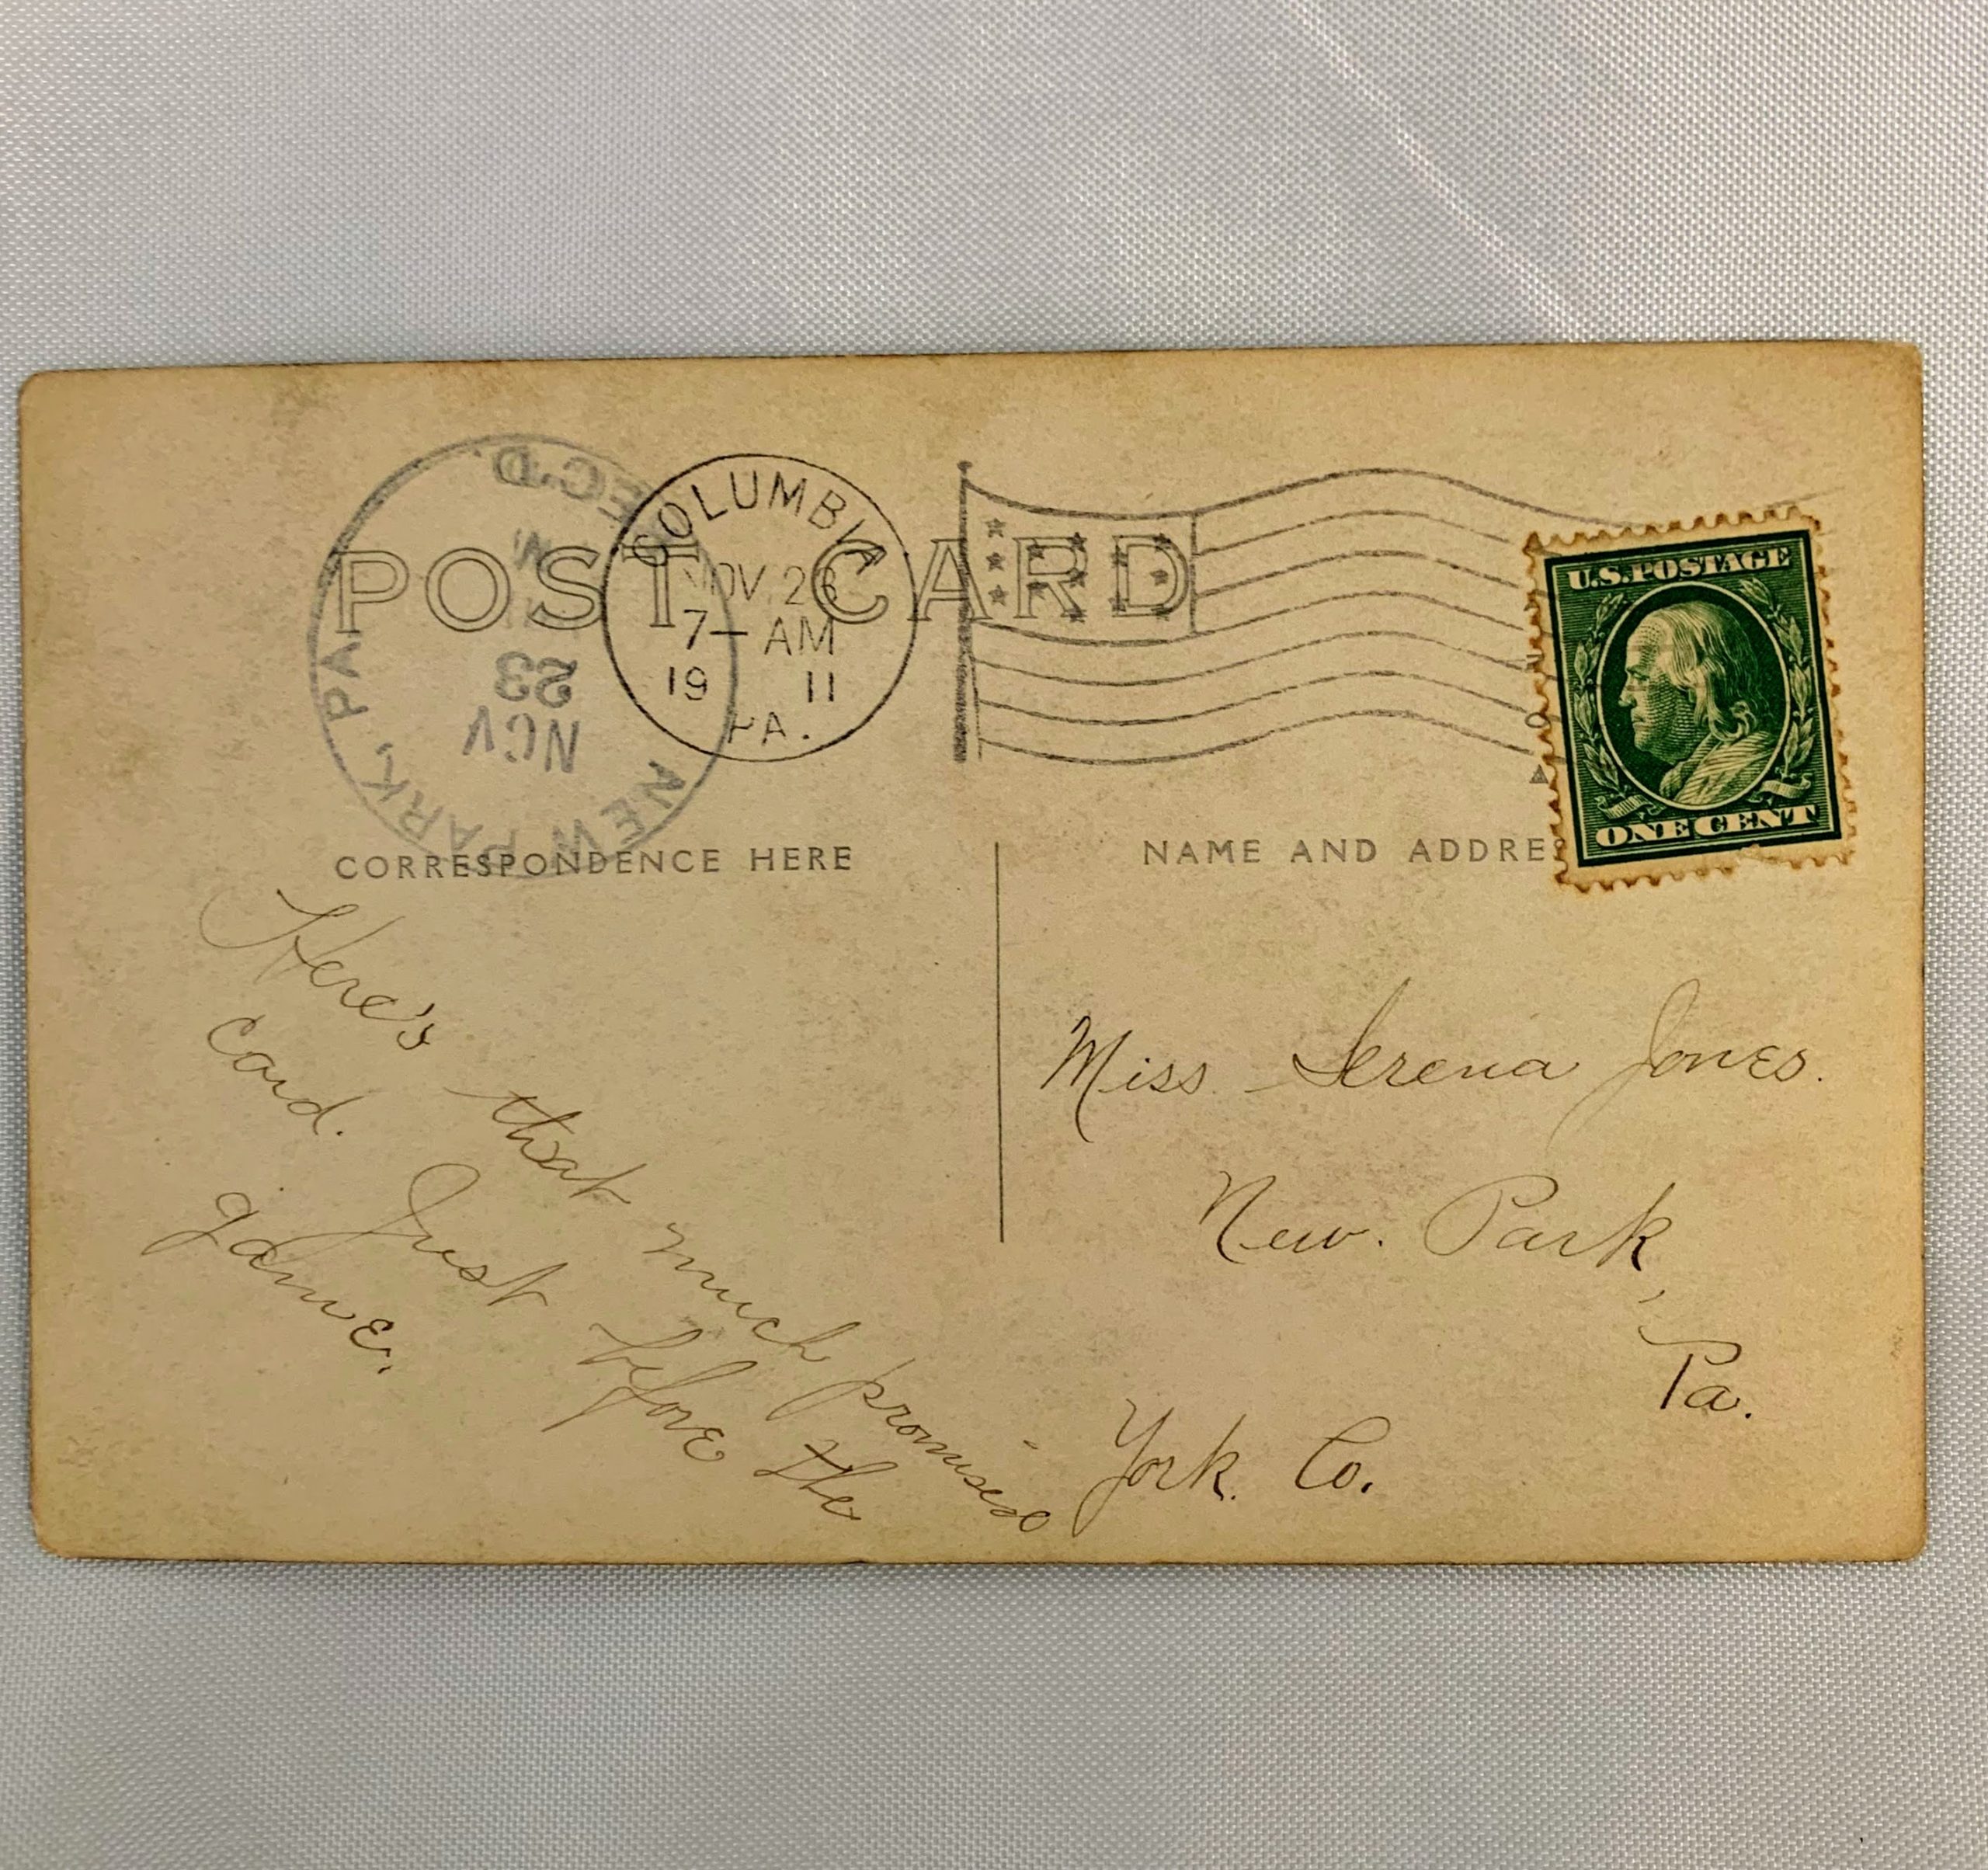 REC'D.
POST CARD
COLUMBIA
NOV 23
7– AM
19 11
PA.
NOV
23
NEW PARK, PA
U.S. POSTAGE
ONE CENT
CORRESPONDENCE HERE
NAME AND ADDRE
Here's that much promised
card. Just before the
game.
Miss Serena Jones.
New Park,
Pa.
York Co.